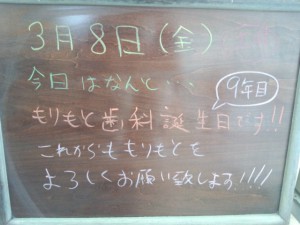 3月8日(金)
今日はなんと・・・
9年目
もりもと歯科誕生日です!!
これからももりもとを
よろしくお願い致します!!!!